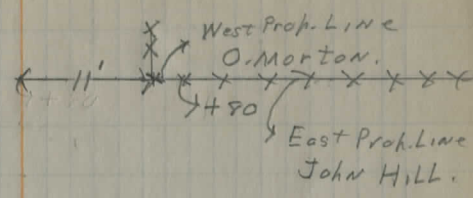 West Prop. Line
O. Morton.
11'
+80
East Prop. Line
John Hill.